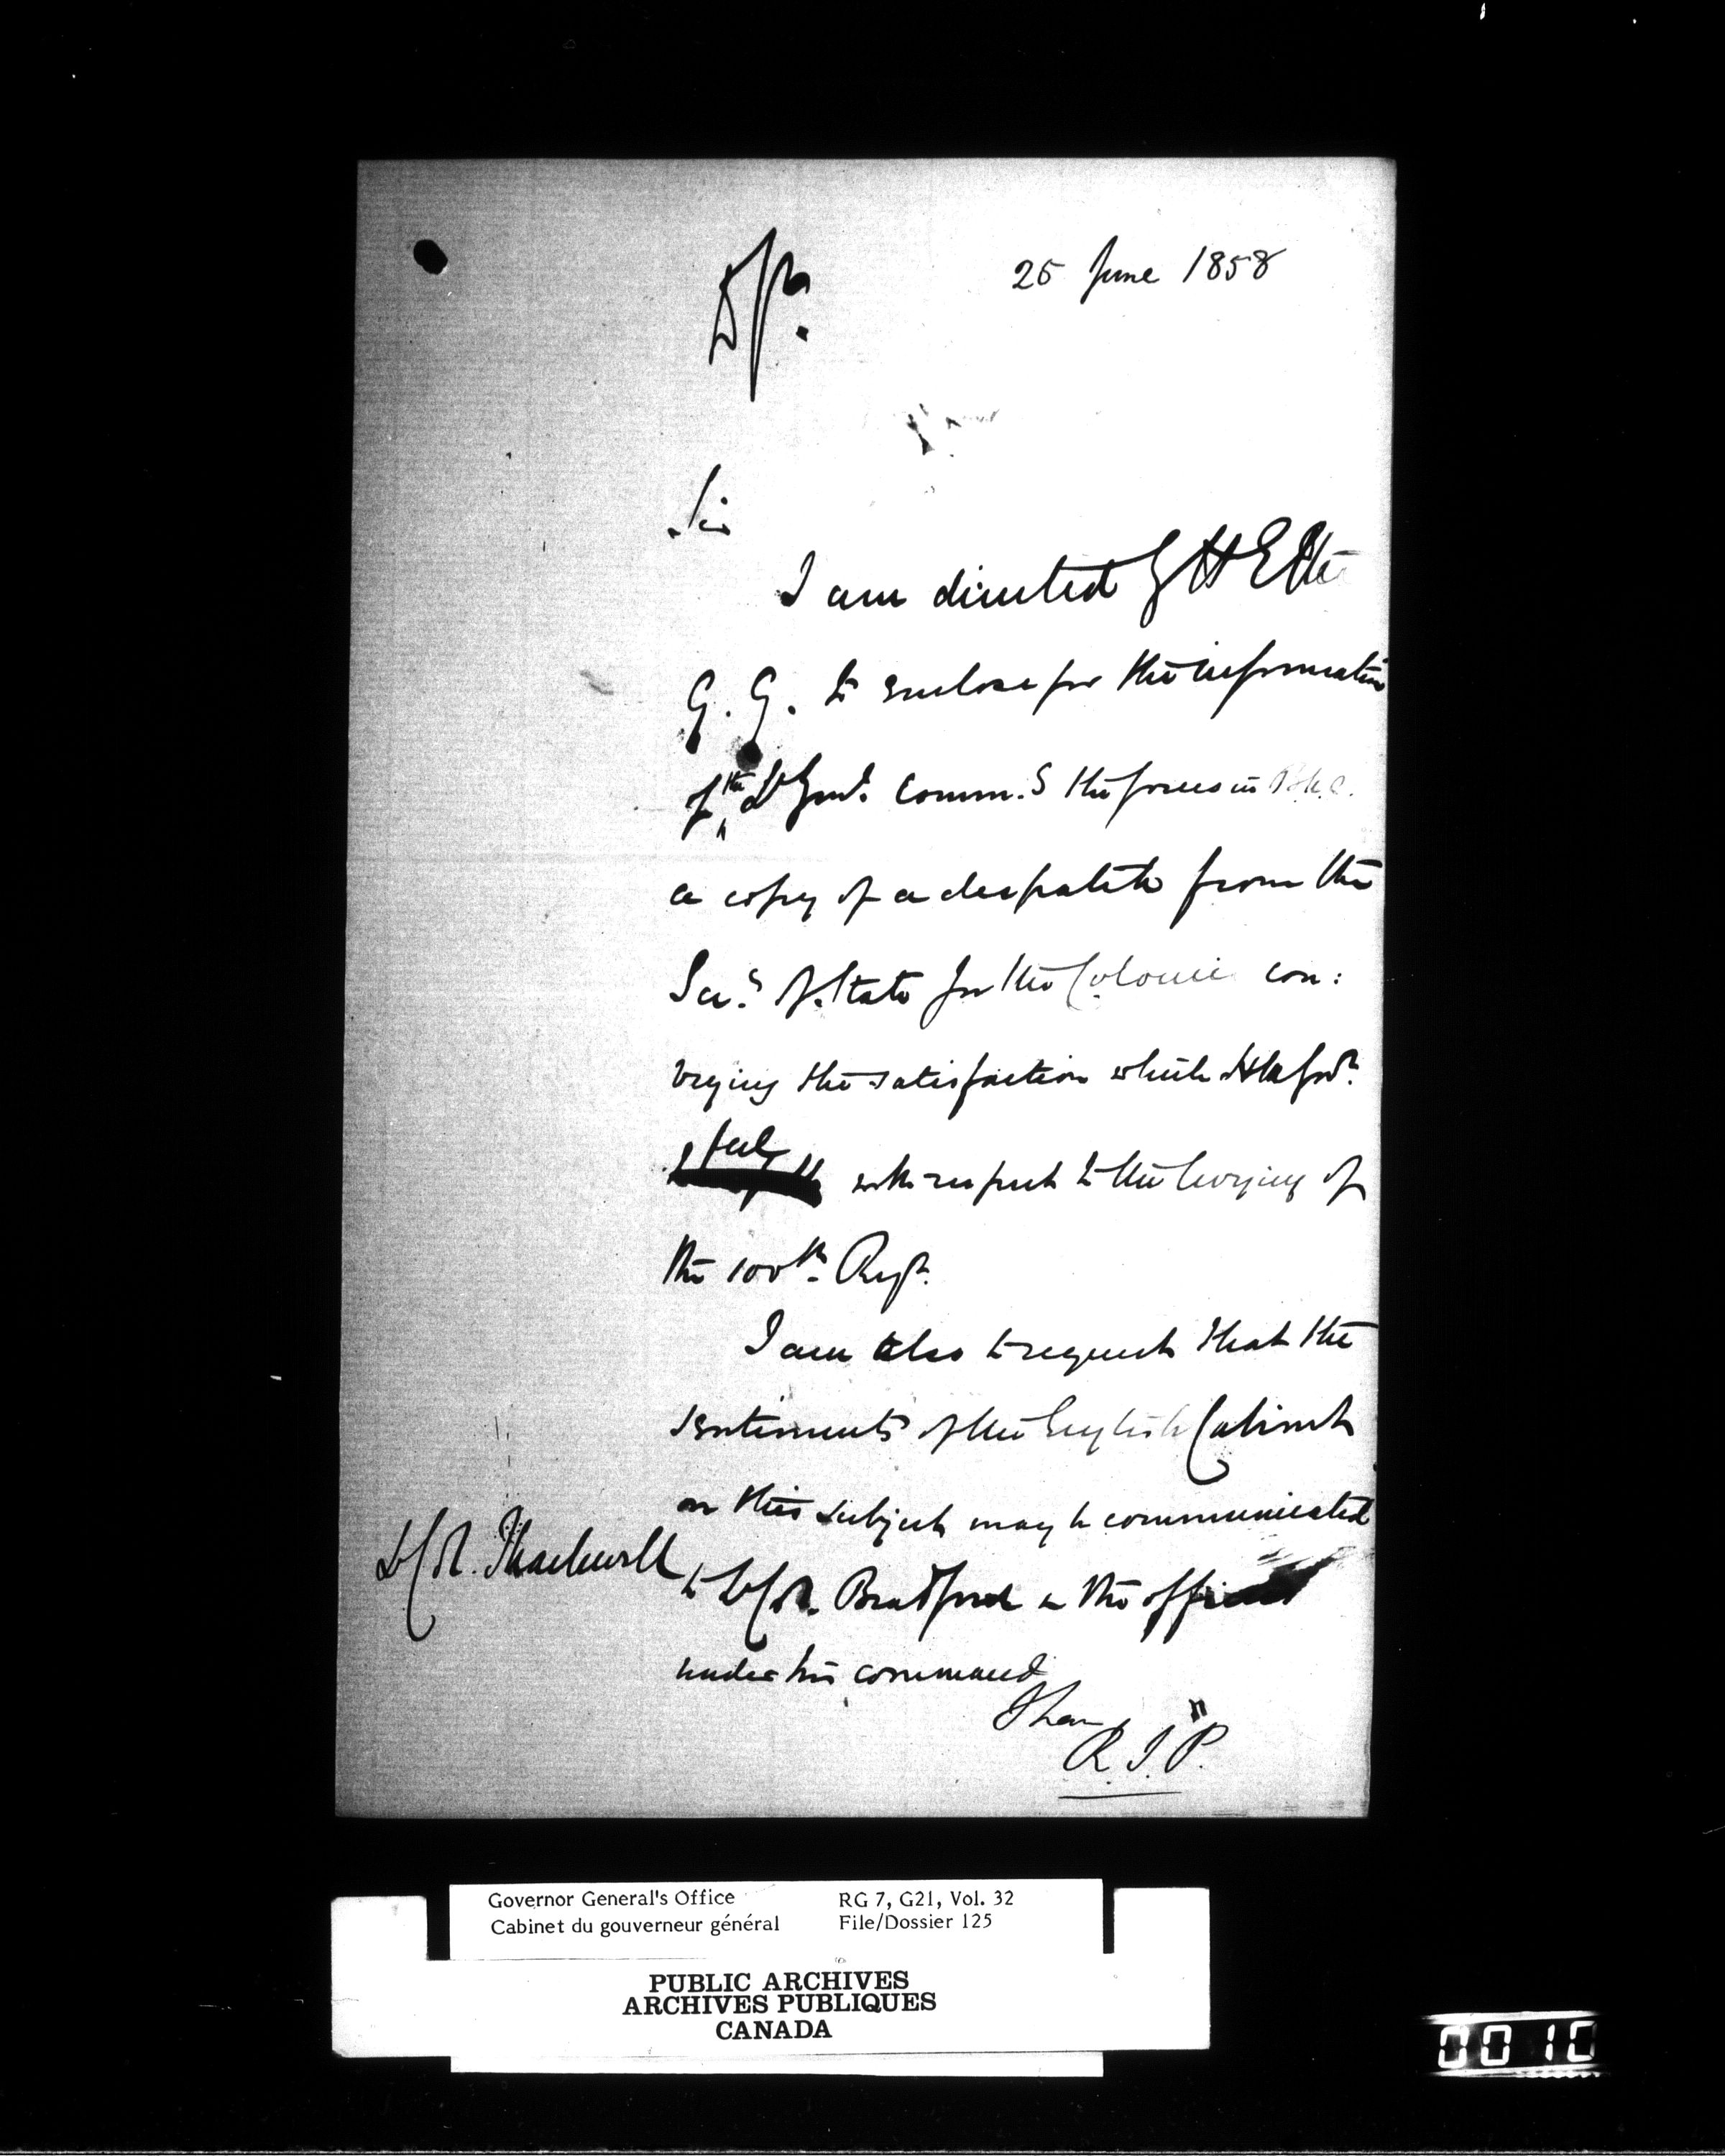 Dft.
25 June 1858
Sir
I am directed by H E the
G. G. to enclose for the information
of the Lt Genl. Comm.g the forces in B.N.A.
a copy of a despatch from the
Secy. of State for the Colonies con:
veying the satisfaction which H M Govt.
feel with respect to the levying of
the 100th. Regt.
I am also to request that the
sentiments of the English Cabinet
on this subject may be communicated
Lt Col. Thackwell
to Lt Col. Bradford & the officers
under his command
I have
R. T. P.
Governor General's Office RG 7, G21, Vol. 32
Cabinet du gouverneur général File/Dossier 125
PUBLIC ARCHIVES
ARCHIVES PUBLIQUES
CANADA
0010